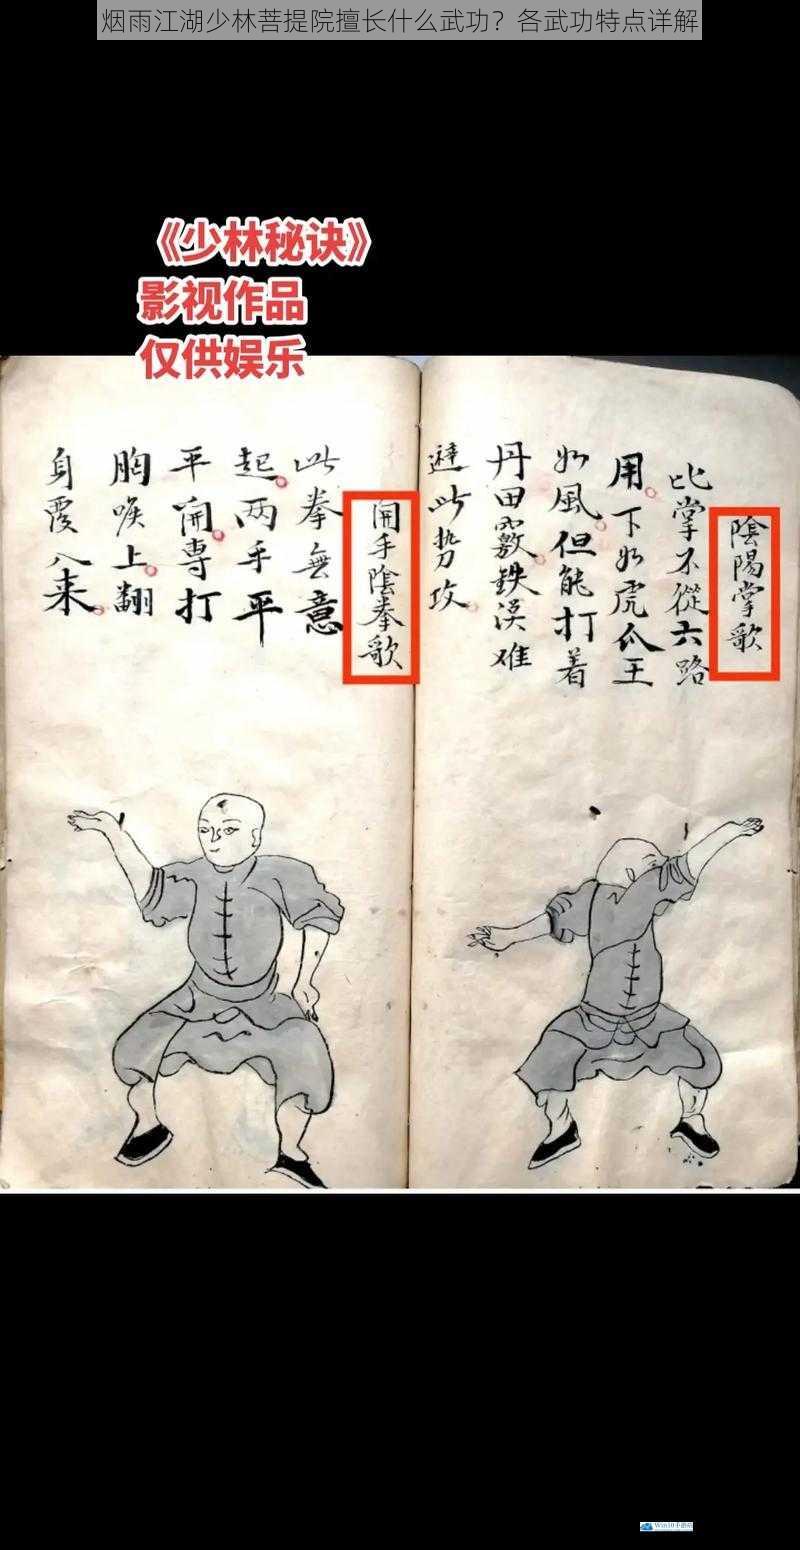 烟雨江湖少林菩提院擅长什么武功？各武功特点详解
《少林秘诀》
影视作品
仅供娱乐
陰陽掌歌
此掌不從六路
用下如虎爪王
如風但能打着
丹田竅鉄漢难
避此势攻
開手陰拳歌
此拳無意
起两手平
平開專打
胸喉上翻
身覆入来
Win10手游站